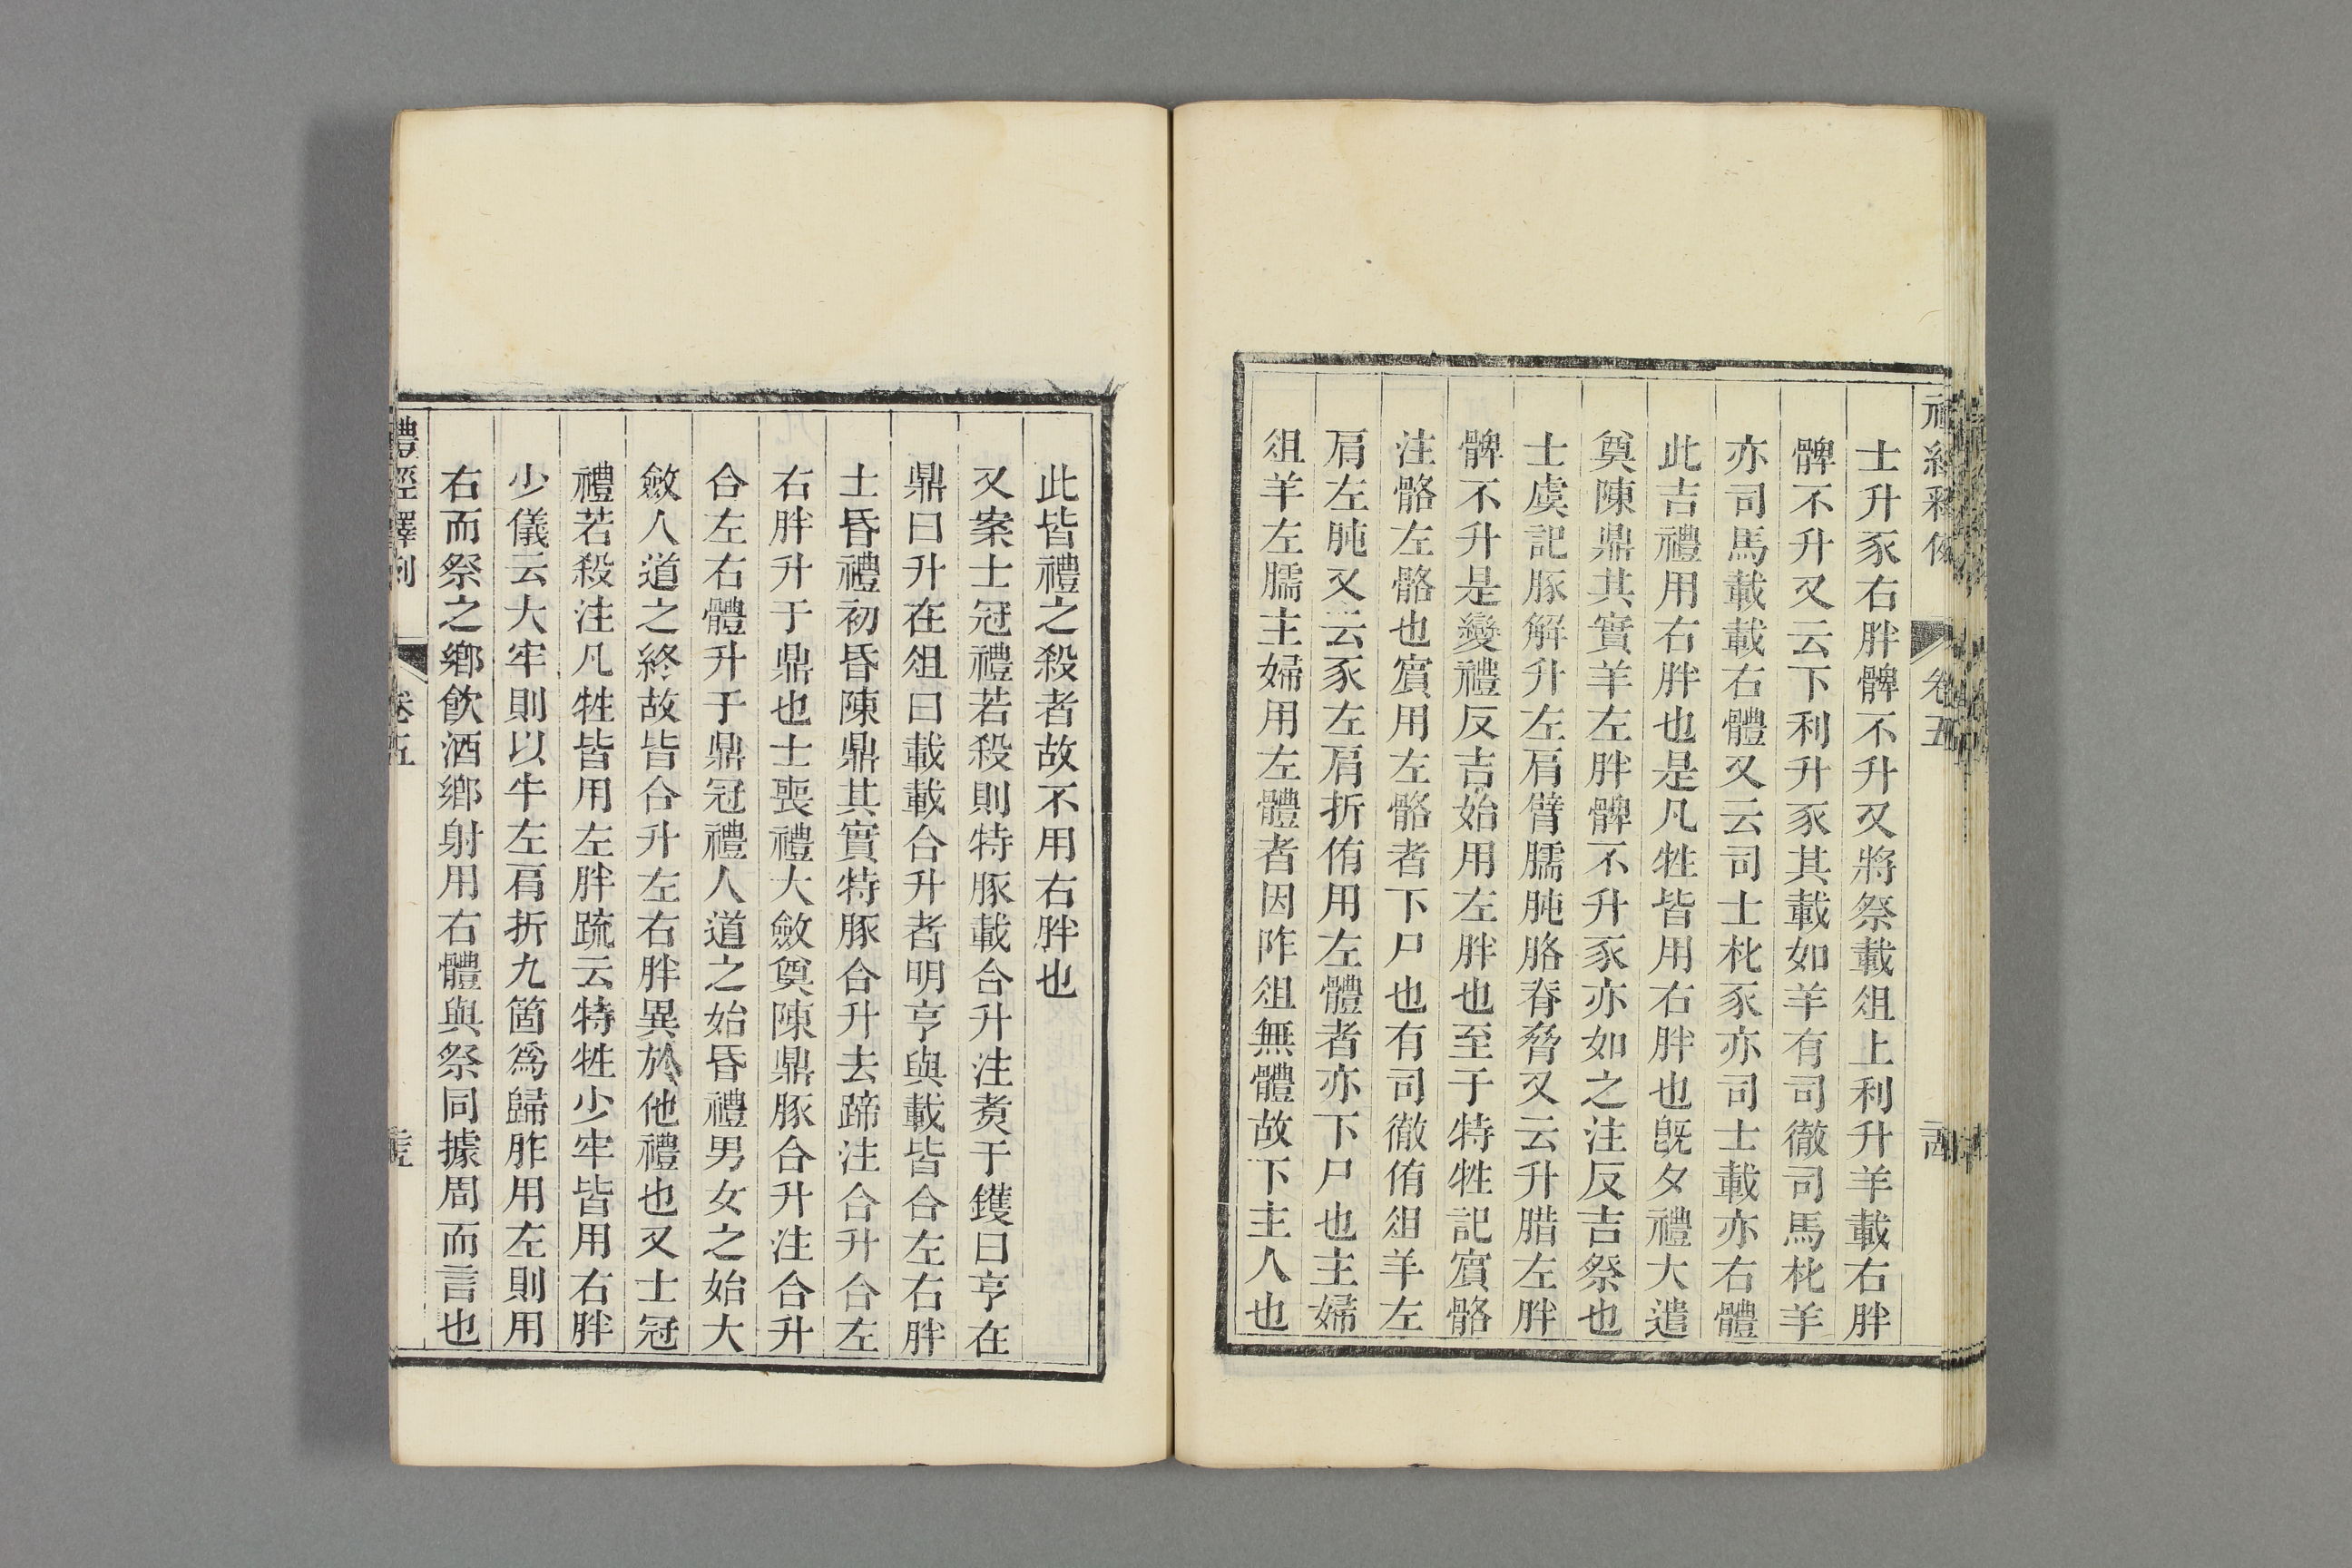 士升豕右胖髀不升又將祭載俎上利升羊載右胖
髀不升又云下利升豕其載如羊有司徹司馬朼羊
亦司馬載載右體又云司士朼豕亦司士載亦右體
此吉禮用右胖也是凡牲皆用右胖也旣夕禮大遣
奠陳鼎其實羊左胖髀不升豕亦如之注反吉祭也
士虞記豚解升左肩臂臑肫胳脊脅又云升腊左胖
髀不升是變禮反吉始用左胖也至于特牲記賓骼
注骼左骼也賓用左骼者下尸也有司徹侑俎羊左
肩左肫又云豕左肩折侑用左體者亦下尸也主婦
俎羊左臑主婦用左體者因阼俎無體故下主人也
卷五
此皆禮之殺者故不用右胖也
又案士冠禮若殺則特豚載合升注煑于鑊曰亨在
鼎曰升在俎曰載載合升者明亨與載皆合左右胖
士昏禮初昏陳鼎其實特豚合升去蹄注合升合左
右胖升于鼎也士喪禮大斂奠陳鼎豚合升注合升
合左右體升于鼎冠禮人道之始昏禮男女之始大
斂人道之終故皆合升左右胖異於他禮也又士冠
禮若殺注凡牲皆用左胖疏云特牲少牢皆用右胖
少儀云大牢則以牛左肩折九箇爲歸胙用左則用
右而祭之鄉飲酒鄉射用右體與祭同據周而言也
禮經釋例
卷五